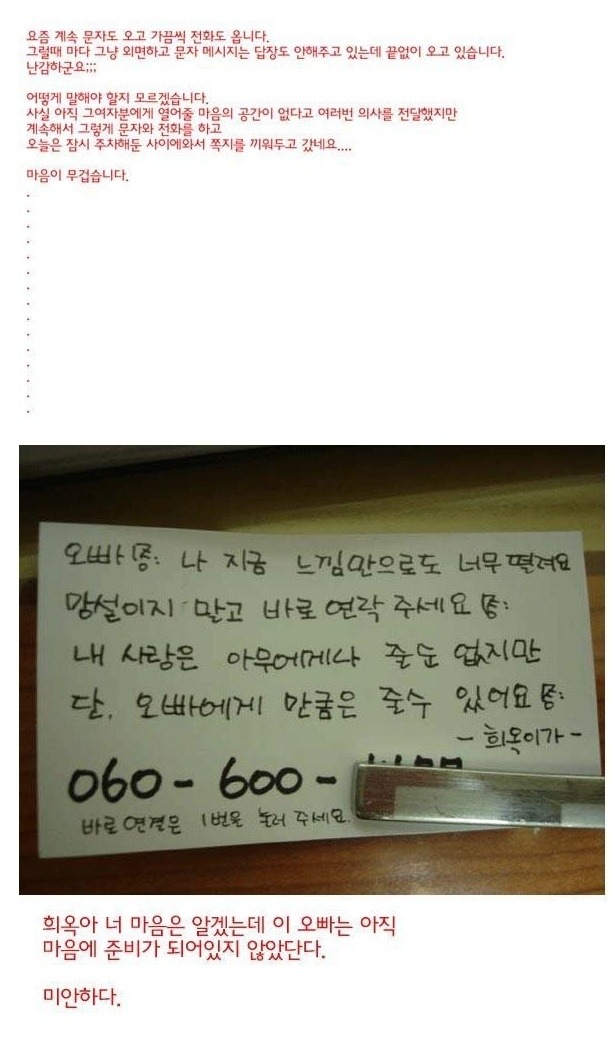 요즘 계속 문자도 오고 가끔씩 전화도 옵니다.
그럴때 마다 그냥 외면하고 문자 메시지는 답장도 안해주고 있는데 끝없이 오고 있습니다.
난감하군요;;;
어떻게 말해야 할지 모르겠습니다.
사실 아직 그여자분에게 열어줄 마음의 공간이 없다고 여러번 의사를 전달했지만
계속해서 그렇게 문자와 전화를 하고
오늘은 잠시 주차해둔 사이에와서 쪽지를 끼워두고 갔네요....
마음이 무겁습니다.
.
.
.
.
.
.
.
.
.
.
.
.
.
.
.
오빠 나 지금 느낌만으로도 너무 떨려요
망설이지 말고 바로 연락 주세요
내 사랑은 아무에게나 줄순 없지만
단, 오빠에게 만큼은 줄수 있어요
- 희옥이가 -
060 - 600 -
바로 연결은 1번을 눌러 주세요.
희옥아 너 마음은 알겠는데 이 오빠는 아직
마음에 준비가 되어있지 않았단다.
미안하다.